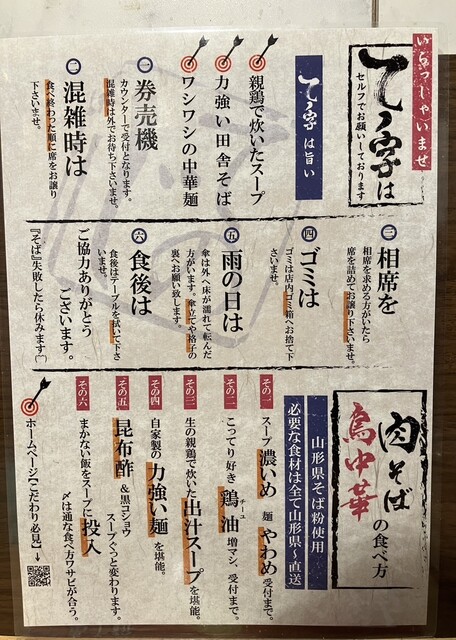 いらっしゃいませ
て丿字は
セルフでお願いしております
て丿字は旨い
親鶏で炊いたスープ
力強い田舎そば
ワシワシの中華麺
一 券売機
カウンターで受付となります。
混雑時は外でお待ち下さいませ。
二 混雑時は
食べ終わった順に席をお譲り
下さいませ。
三 相席を
相席を求める方がいたら
席を詰めてお譲り下さいませ。
四 ゴミは
ゴミは店内ゴミ箱へお捨て下
さいませ。
五 雨の日は
傘は外へ床が濡れて転んだ
方がいます。傘立てや格子の
裏へお願い致します。
六 食後は
食後はテーブルを拭いて下さ
いませ。
ご協力ありがとう
ございます。
『そば』失敗したら休みます()
肉そば
鳥中華
の食べ方
山形県そば粉使用
必要な食材は全て山形県〜直送
その一 スープ濃いめ 麺 やわめ 受付まで。
その二 こってり好き 鶏油 チーユ 増マシ、受付まで。
その三 生の親鶏で炊いた出汁スープを堪能。
その四 自家製の力強い麺を堪能。
その五 昆布酢&黒コショウ
スープぐっと変わります。
その六 まかない飯をスープに投入
〆は通な食べ方ワサビが合う。
ホームページ【こだわり必見】→